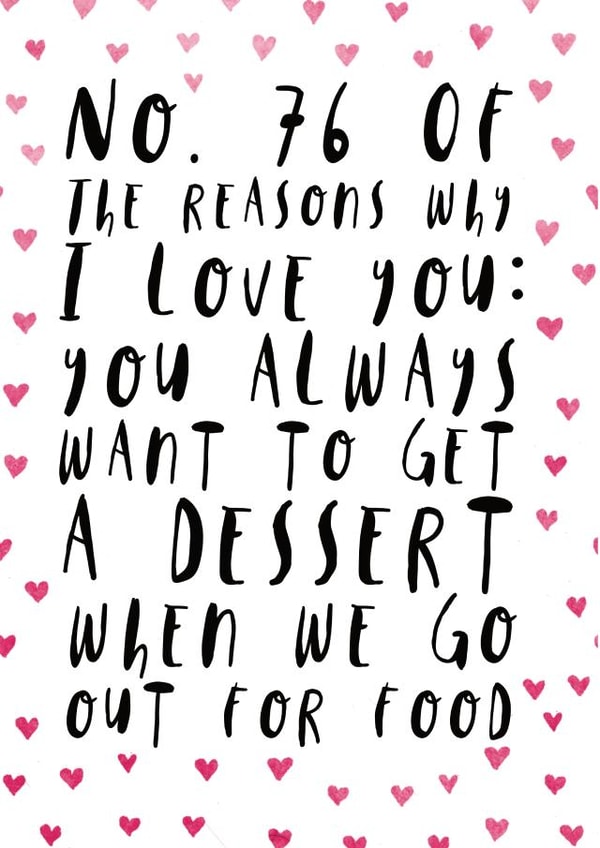 No. 76 OF
ThE REASONS Why
I LOVE yOU:
yOU ALWAyS
WANT TO GET
A DESSERT
WhEN WE GO
OUT FOR FOOD